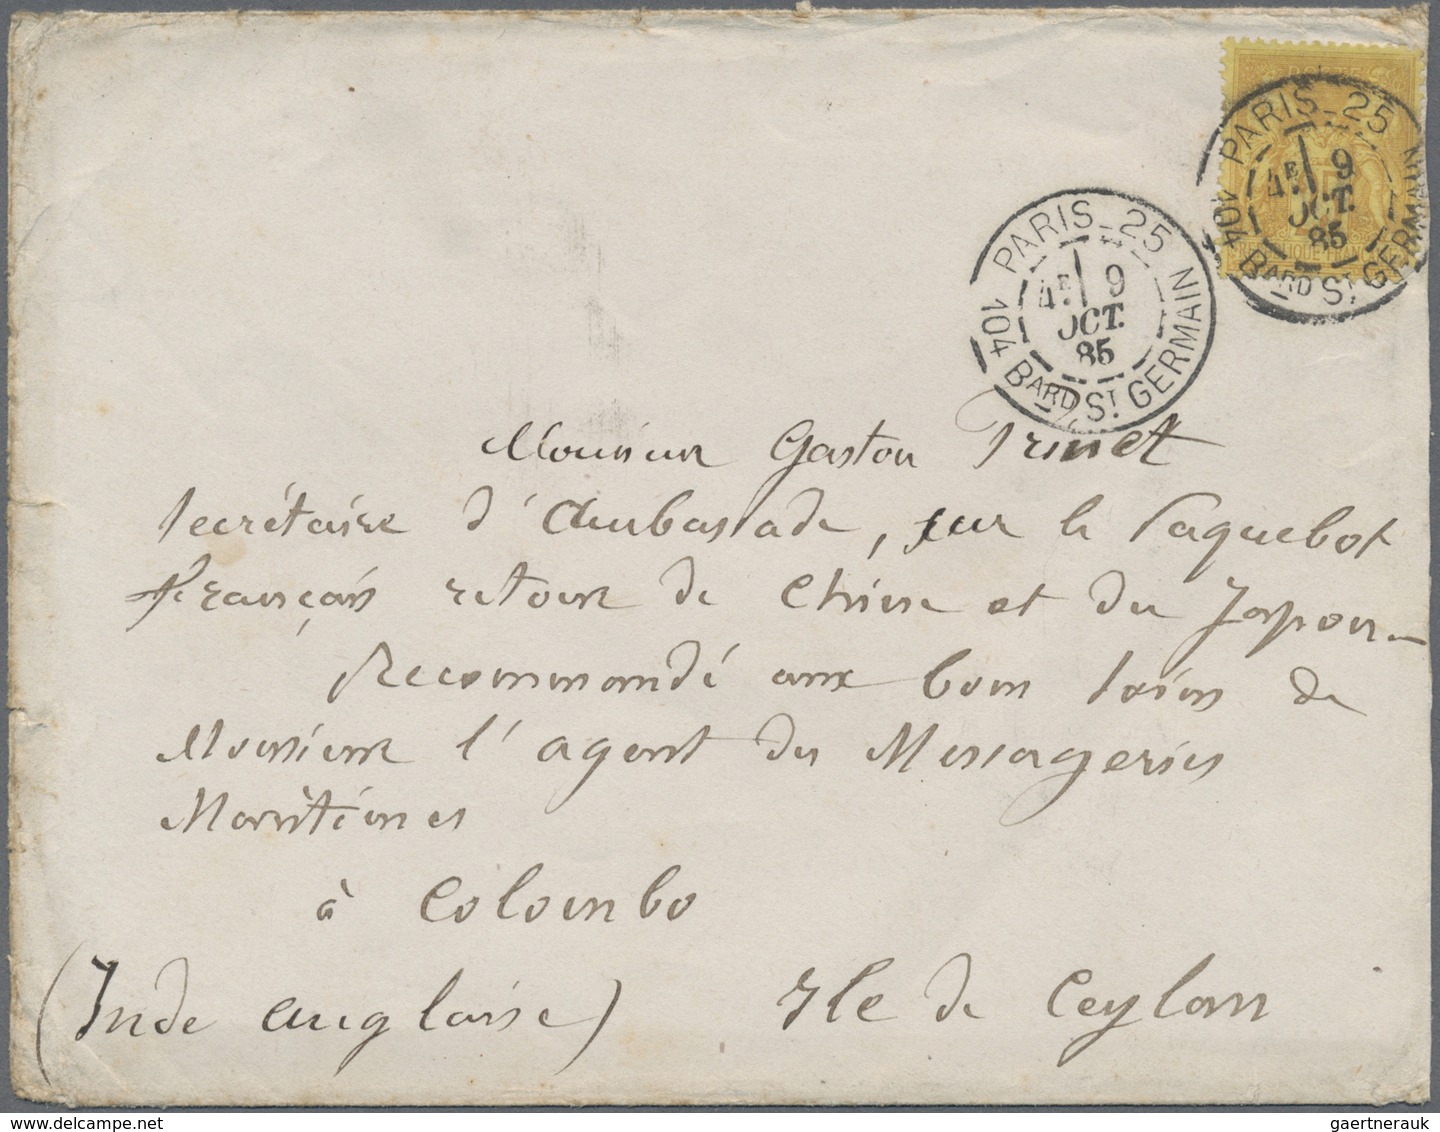 PARIS_25
4E 9
OCT.
85
104 BARD ST GERMAIN
PARIS_25
4E 9
OCT.
85
104 BARD ST GERMAIN
Monsieur Gaston Prinet
Secrétaire d'Ambassade, sur le Paquebot
français retour de Chine et du Japon_
Recommandé aux bons soins de
Monsieur l'agent des Messageries
Maritimes
à Colombo
(Inde anglaise) Ile de Ceylan
gaertnerauk